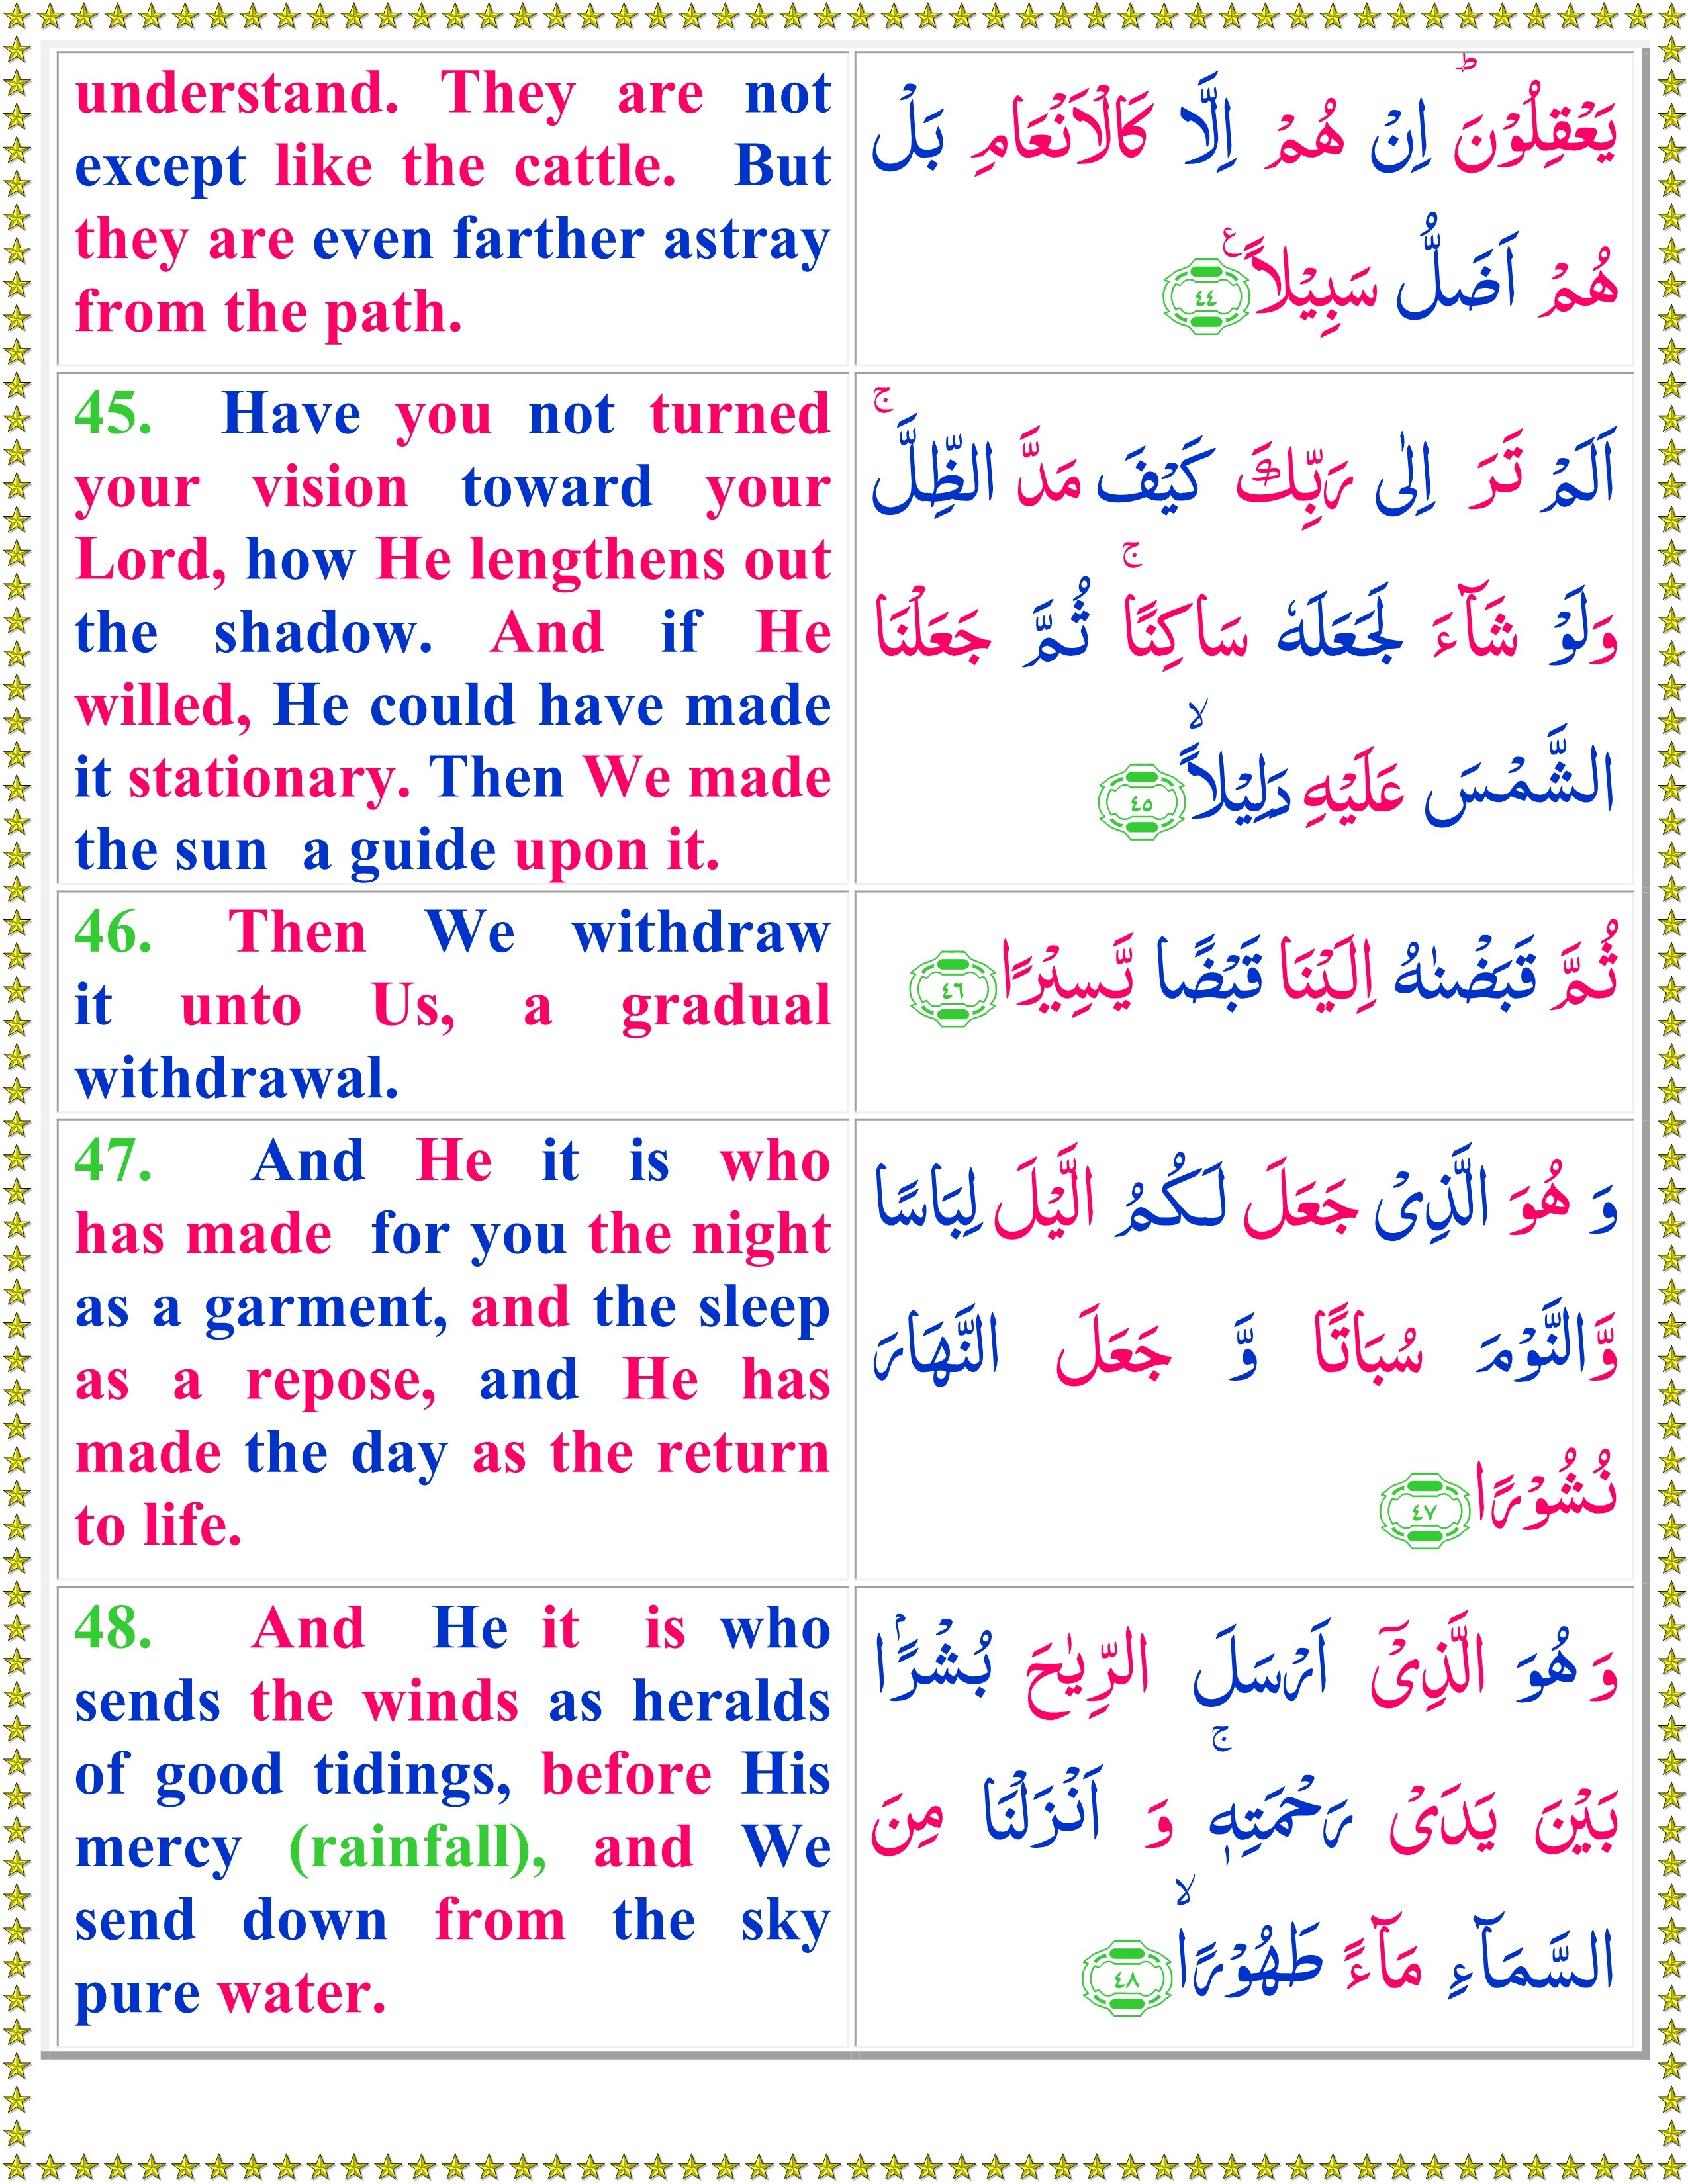 understand. They are not
except like the cattle. But
they are even farther astray
from the path.
يَعْقِلُوْنَ ؕ اِنْ هُمْ اِلَّا كَالْاَنْعَامِ بَلْ
هُمْ اَضَلُّ سَبِيْلًا ۧ ٤٤
45. Have you not turned
your vision toward your
Lord, how He lengthens out
the shadow. And if He
willed, He could have made
it stationary. Then We made
the sun a guide upon it.
اَلَمْ تَرَ اِلٰى رَبِّكَ كَيْفَ مَدَّ الظِّلَّ ۚ
وَلَوْ شَآءَ لَجَعَلَهٗ سَاكِنًا ۚ ثُمَّ جَعَلْنَا
الشَّمْسَ عَلَيْهِ دَلِيْلًا ۙ ٤٥
46. Then We withdraw
it unto Us, a gradual
withdrawal.
ثُمَّ قَبَضْنٰهُ اِلَيْنَا قَبْضًا يَّسِيْرًا ٤٦
47. And He it is who
has made for you the night
as a garment, and the sleep
as a repose, and He has
made the day as the return
to life.
وَ هُوَ الَّذِىْ جَعَلَ لَـكُمُ الَّيْلَ لِبَاسًا
وَّالنَّوْمَ سُبَاتًا وَّ جَعَلَ النَّهَارَ
نُشُوْرًا ٤٧
48. And He it is who
sends the winds as heralds
of good tidings, before His
mercy (rainfall), and We
send down from the sky
pure water.
وَ هُوَ الَّذِىْۤ اَرْسَلَ الرِّيٰحَ بُشْرًۢا
بَيْنَ يَدَىْ رَحْمَتِهٖ ۚ وَ اَنْزَلْنَا مِنَ
السَّمَآءِ مَآءً طَهُوْرًا ۙ ٤٨